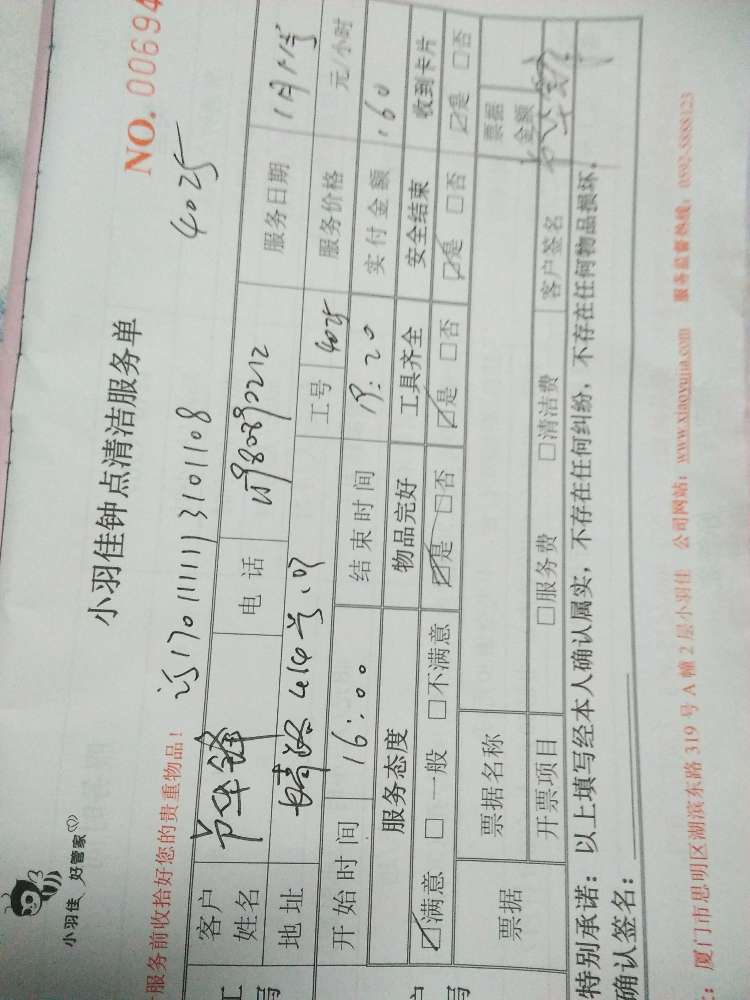 小羽佳 好管家
小羽佳钟点清洁服务单
NO. 00694
服务前收拾好您的贵重物品!
170111113101108
4025
客户姓名
电话
服务日期 1月11号
地址
工号 4025
服务价格 元/小时
开始时间 16:00
结束时间 19:20
实付金额 160
服务态度 物品完好 工具齐全 安全结束 收到卡片
☑满意 □一般 □不满意 ☑是 □否 ☑是 □否 ☑是 □否 ☑是 □否
票据 票据名称 票据金额
开票项目 □服务费 □清洁费 客户签名
特别承诺:以上填写经本人确认属实,不存在任何纠纷,不存在任何物品损坏。
确认签名:
:厦门市思明区湖滨东路 319 号 A 幢 2 层小羽佳 公司网站:www.xiaoyujia.com 服务监督热线:0592-5888123